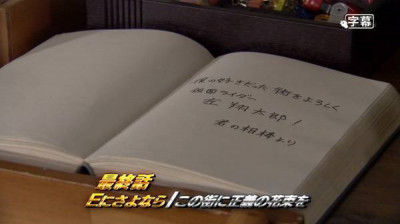 字幕
僕の好きだった街をよろしく
仮面ライダー
左 翔太郎！
君の相棒より
最終話
Eにさよなら/この街に正義の花束を